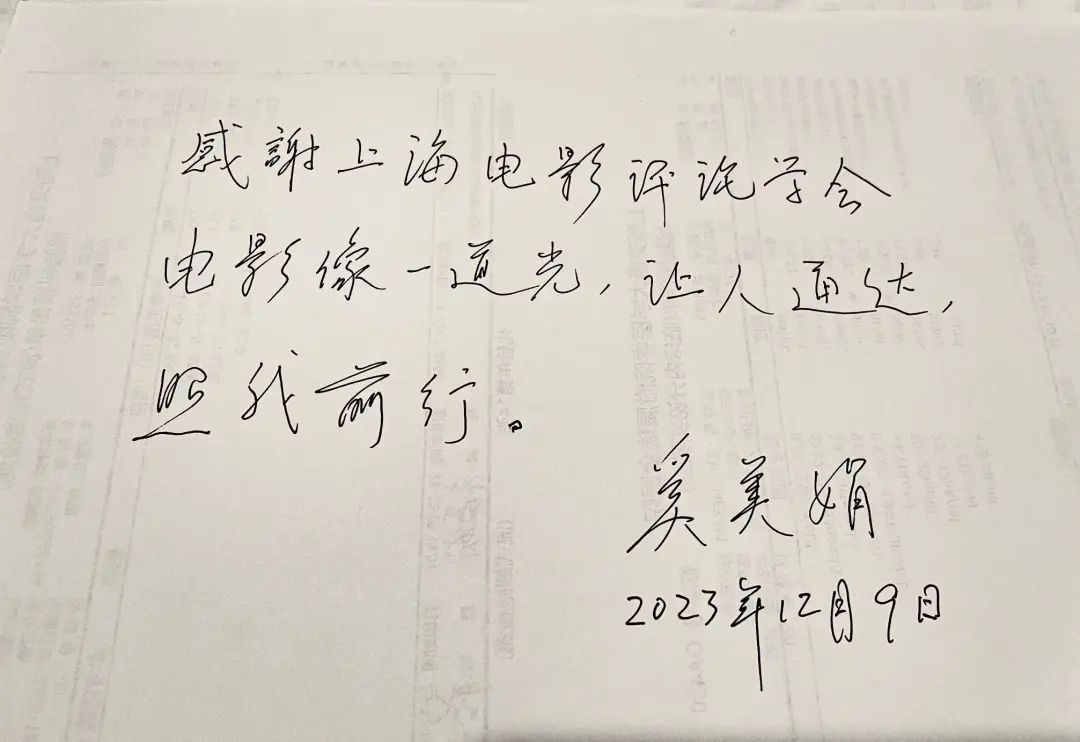 感謝上海电影评论学会
电影像一道光，让人通达，
照我前行。
奚美娟
2023年12月9日